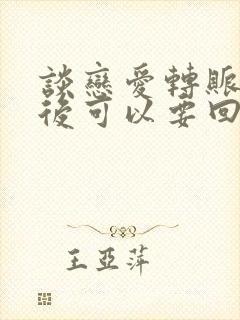 談戀愛轉賬
後可以要回
王亞萍